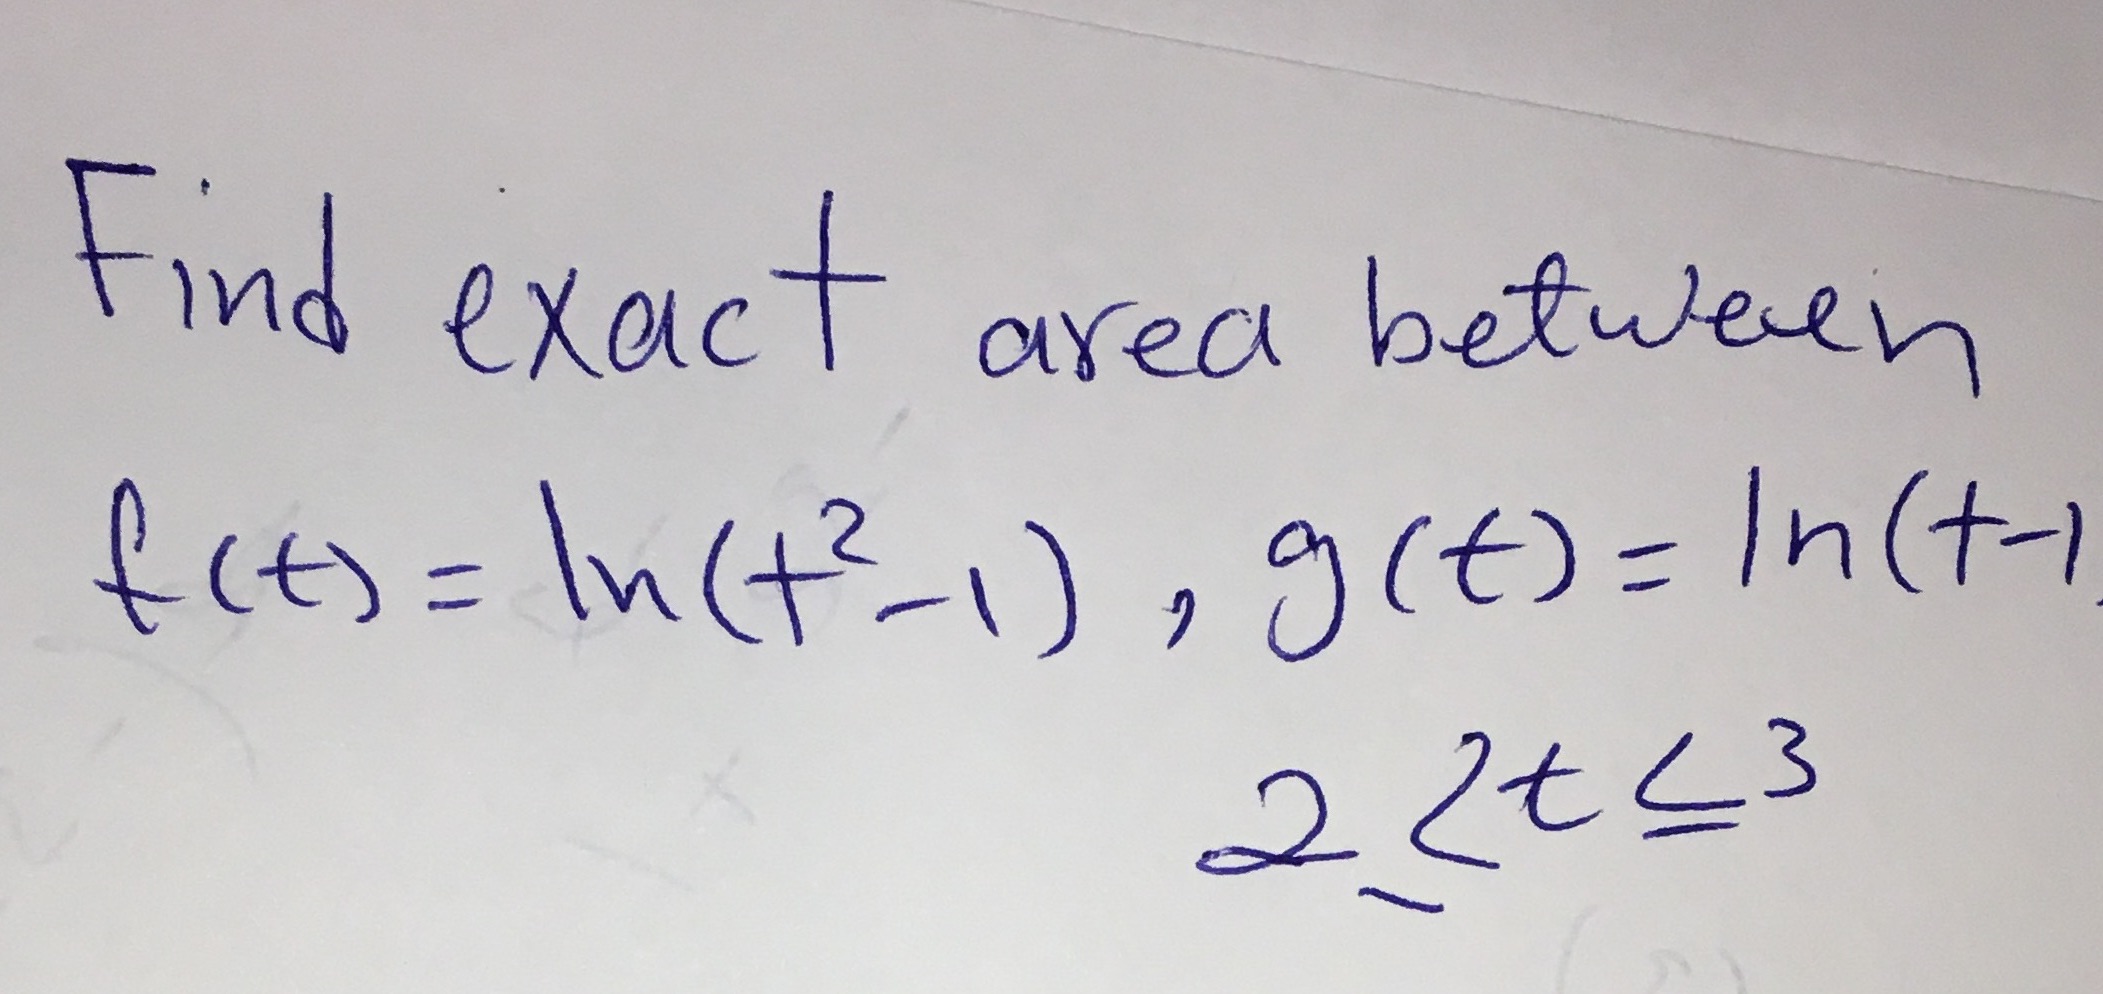 Find exact area between
f(t) = ln(t²-1), g(t) = ln(t-1)
2 ≤ t ≤ 3